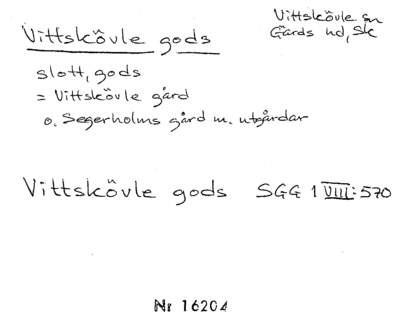 Vittskövle gods
Vittskövle sn
Gärds hd, Sk
slott, gods
= Vittskövle gård
o. Segerholms gård m. utgårdar
Vittskövle gods SGG 1 VIII:570
Nr 16204